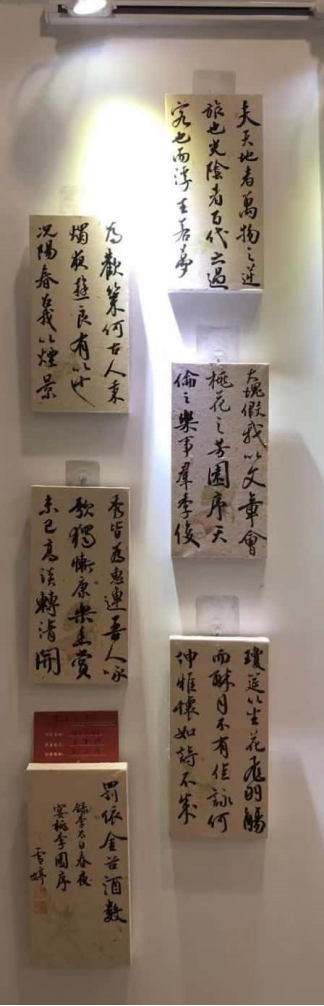 夫天地者萬物之逆
旅也光陰者百代之過
客也而浮生若夢
為歡幾何古人秉
燭夜遊良有以也
况陽春召我以煙景
大塊假我以文章會
桃花之芳園序天
倫之樂事羣季俊
秀皆為惠連吾人詠
歌獨慚康樂幽賞
未已高談轉清開
瓊筵以坐花飛羽觴
而醉月不有佳詠何
伸雅懷如詩不成
罰依金谷酒數
錄李太白春夜
宴桃李園序
雪婷